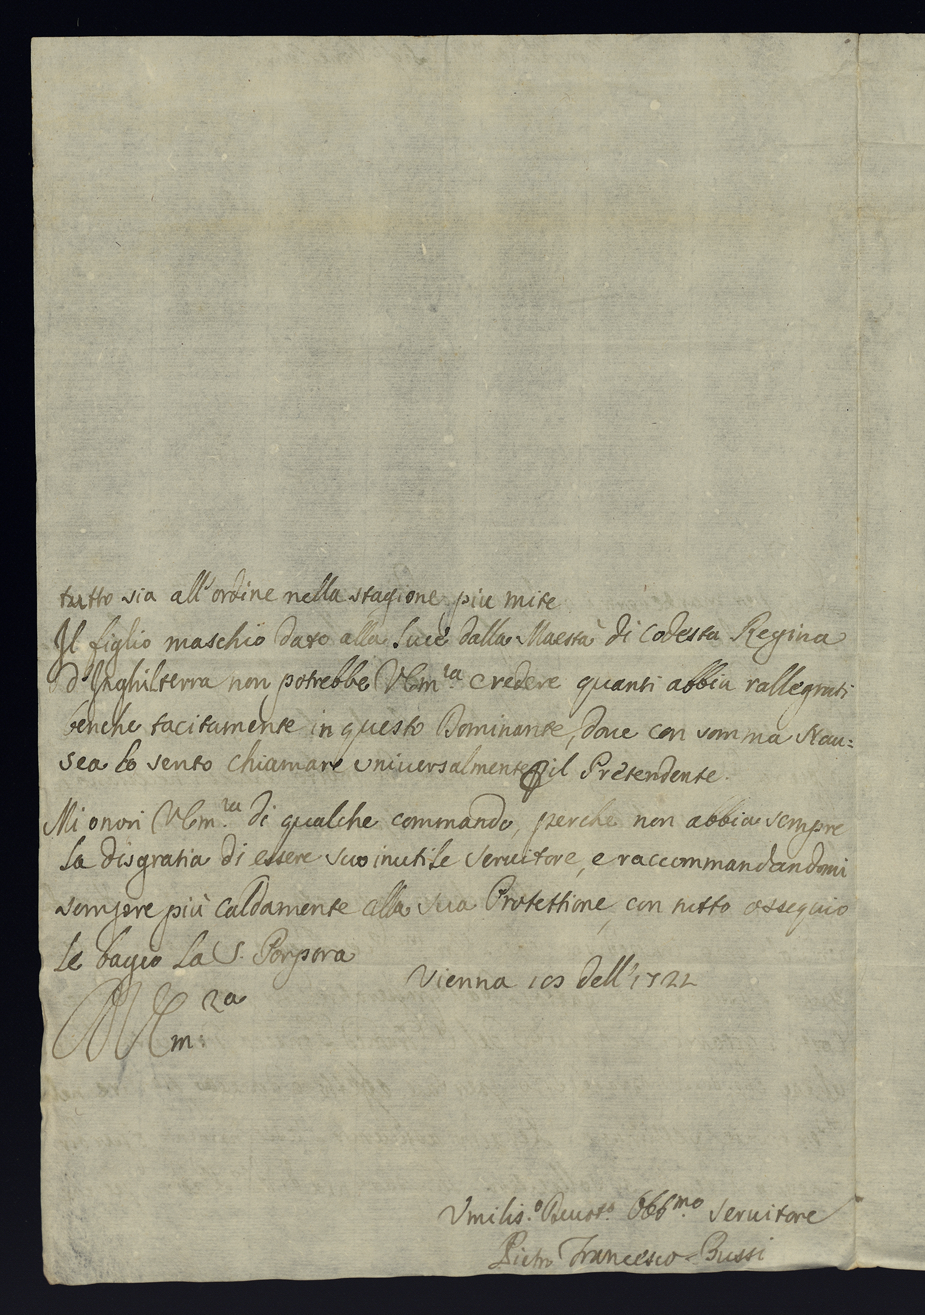 tutto sia all'ordine nella stagione piu mite
Il figlio maschio dato alla luce dalla Maestà di codesta Regina
d'Inghilterra non potrebbe VEm.ra credere quanti abbia rallegrati
benche tacitamente in questo Dominante, doue con somma Nau=
sea lo sento chiamare uniuersalmente il Pretendente.
Mi onori VEm.ra di qualche commando, perche non abbia sempre
la disgratia di essere suo inutile seruitore, e raccommandandomi
sempre più caldamente alla sua Protettione, con tutto ossequio
le bagio la S. Porpora
Vienna dell' 1722
VEm.ra
Vmilis.o Deuot.o Obb.mo Seruitore
Pietro Francesco Bussi